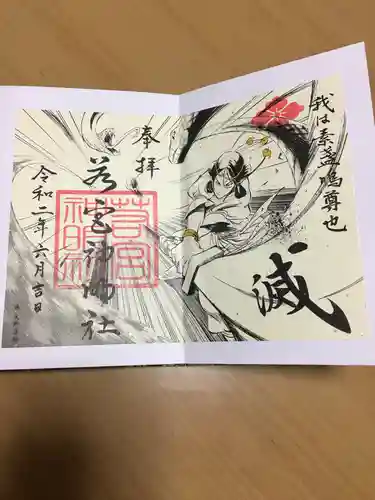 我は素盞嗚尊也
滅
奉拝
若宮神明社
令和二年六月吉日
若宮
神明社